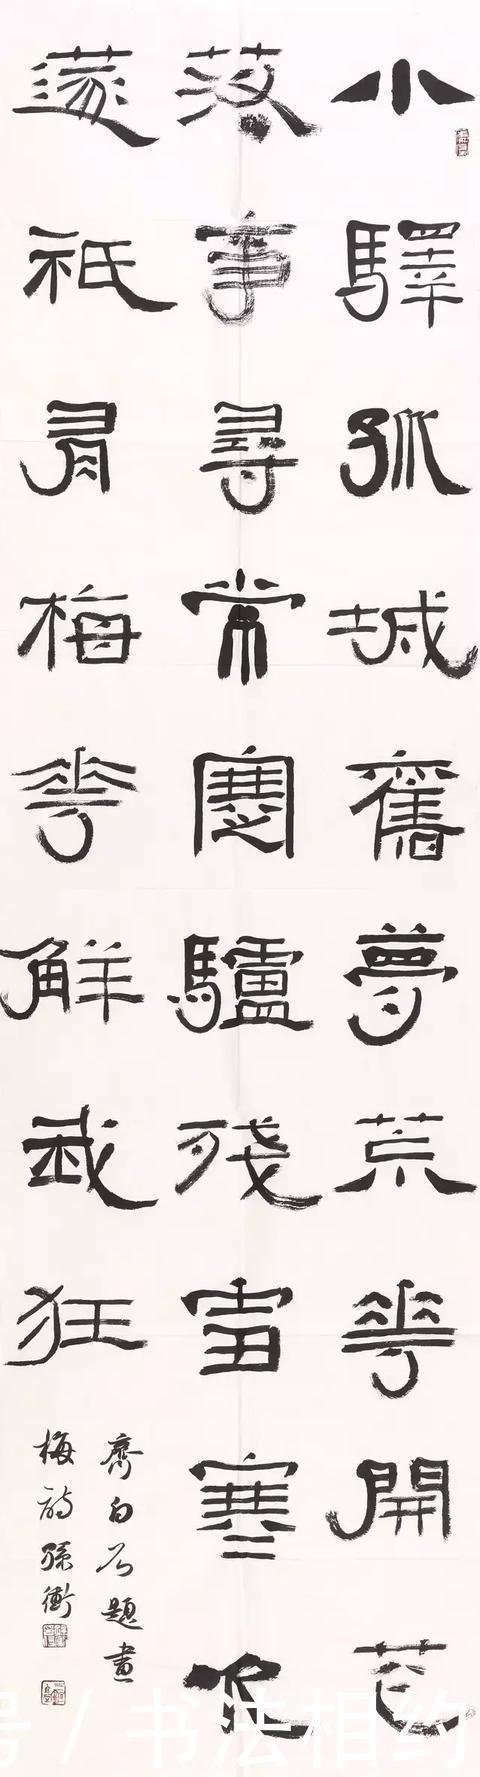 小驛孤城舊夢荒花開花
落事尋常蹇驢殘雪寒吹
篴祇有梅花解我狂
齊白石題畫
梅詩孫衝
号/书法相约